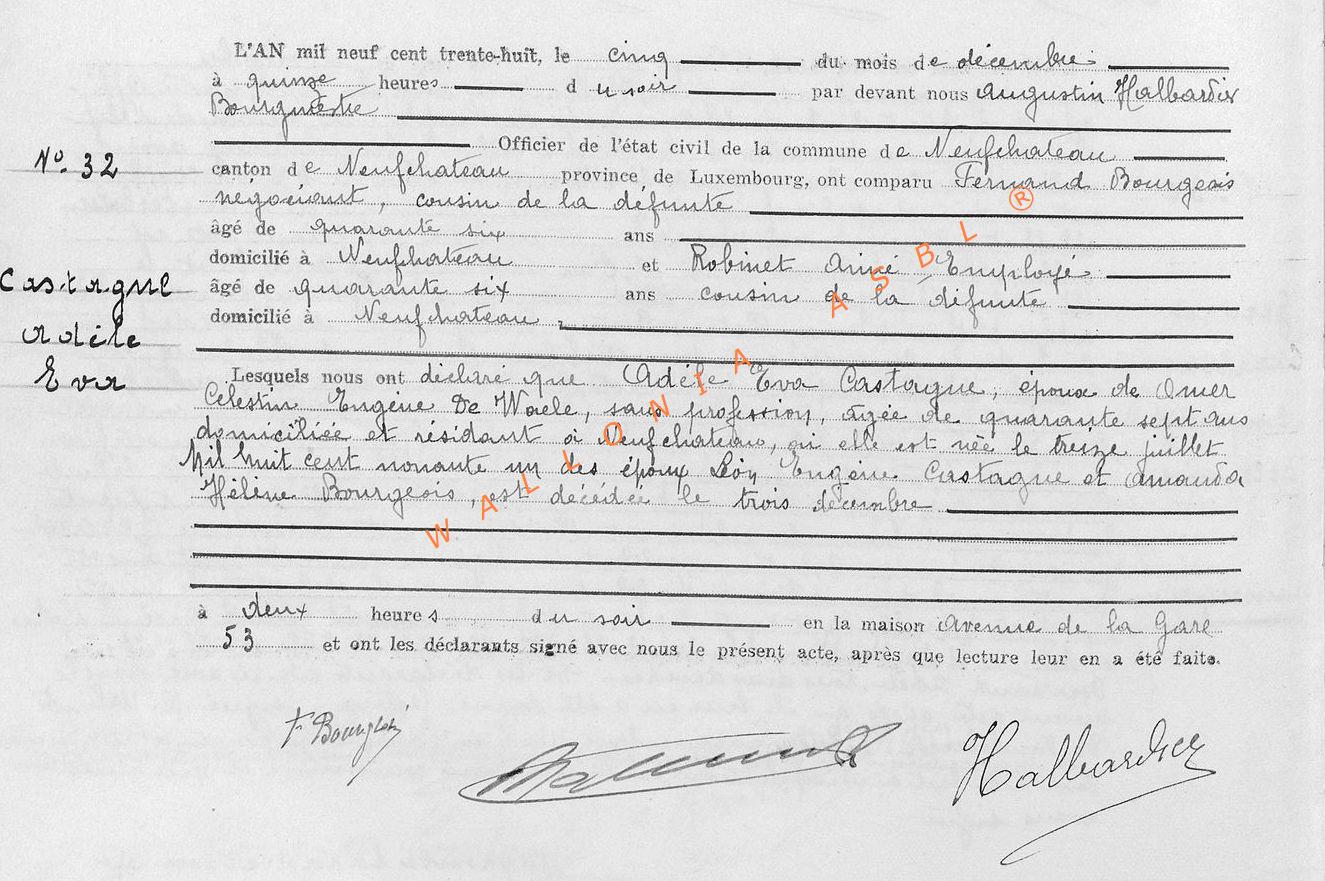 L'AN mil neuf cent trente-huit, le cinq du mois de décembre
à quinze heures du soir par devant nous Augustin Halbardier
Bourgmestre
Officier de l'état civil de la commune de Neufchateau
N° 32
canton de Neufchateau province de Luxembourg, ont comparu Fernand Bourgeois
négociant, cousin de la défunte
âgé de quarante six ans
domicilié à Neufchateau et Robinet Aimé Employé
Castagne
Adèle
Eva
âgé de quarante six ans cousin de la défunte
domicilié à Neufchateau,
Lesquels nous ont déclaré que Adèle Eva Castagne, épouse de Omer
Célestin Eugène De Waele, sans profession, âgée de quarante sept ans
domiciliée et résidant à Neufchateau, où elle est née le treize juillet
Mil huit cent nonante un des époux Léon Eugène Castagne et Amanda
Hélène Bourgeois, est décédée le trois décembre
à deux heures du soir en la maison Avenue de la Gare
53 et ont les déclarants signé avec nous le présent acte, après que lecture leur en a été faite.
F Bourgeois
Halbardier
WALLONIA ASBL ®